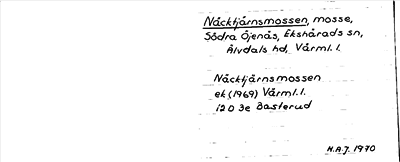 Näcktjärnsmossen, mosse,
Södra Öjenäs, Ekshärads sn,
Älvdals hd, Värml. l.
Näcktjärnsmossen
ek (1969) Värml. l.
12 D 3e Basterud
H.A.J. 1970